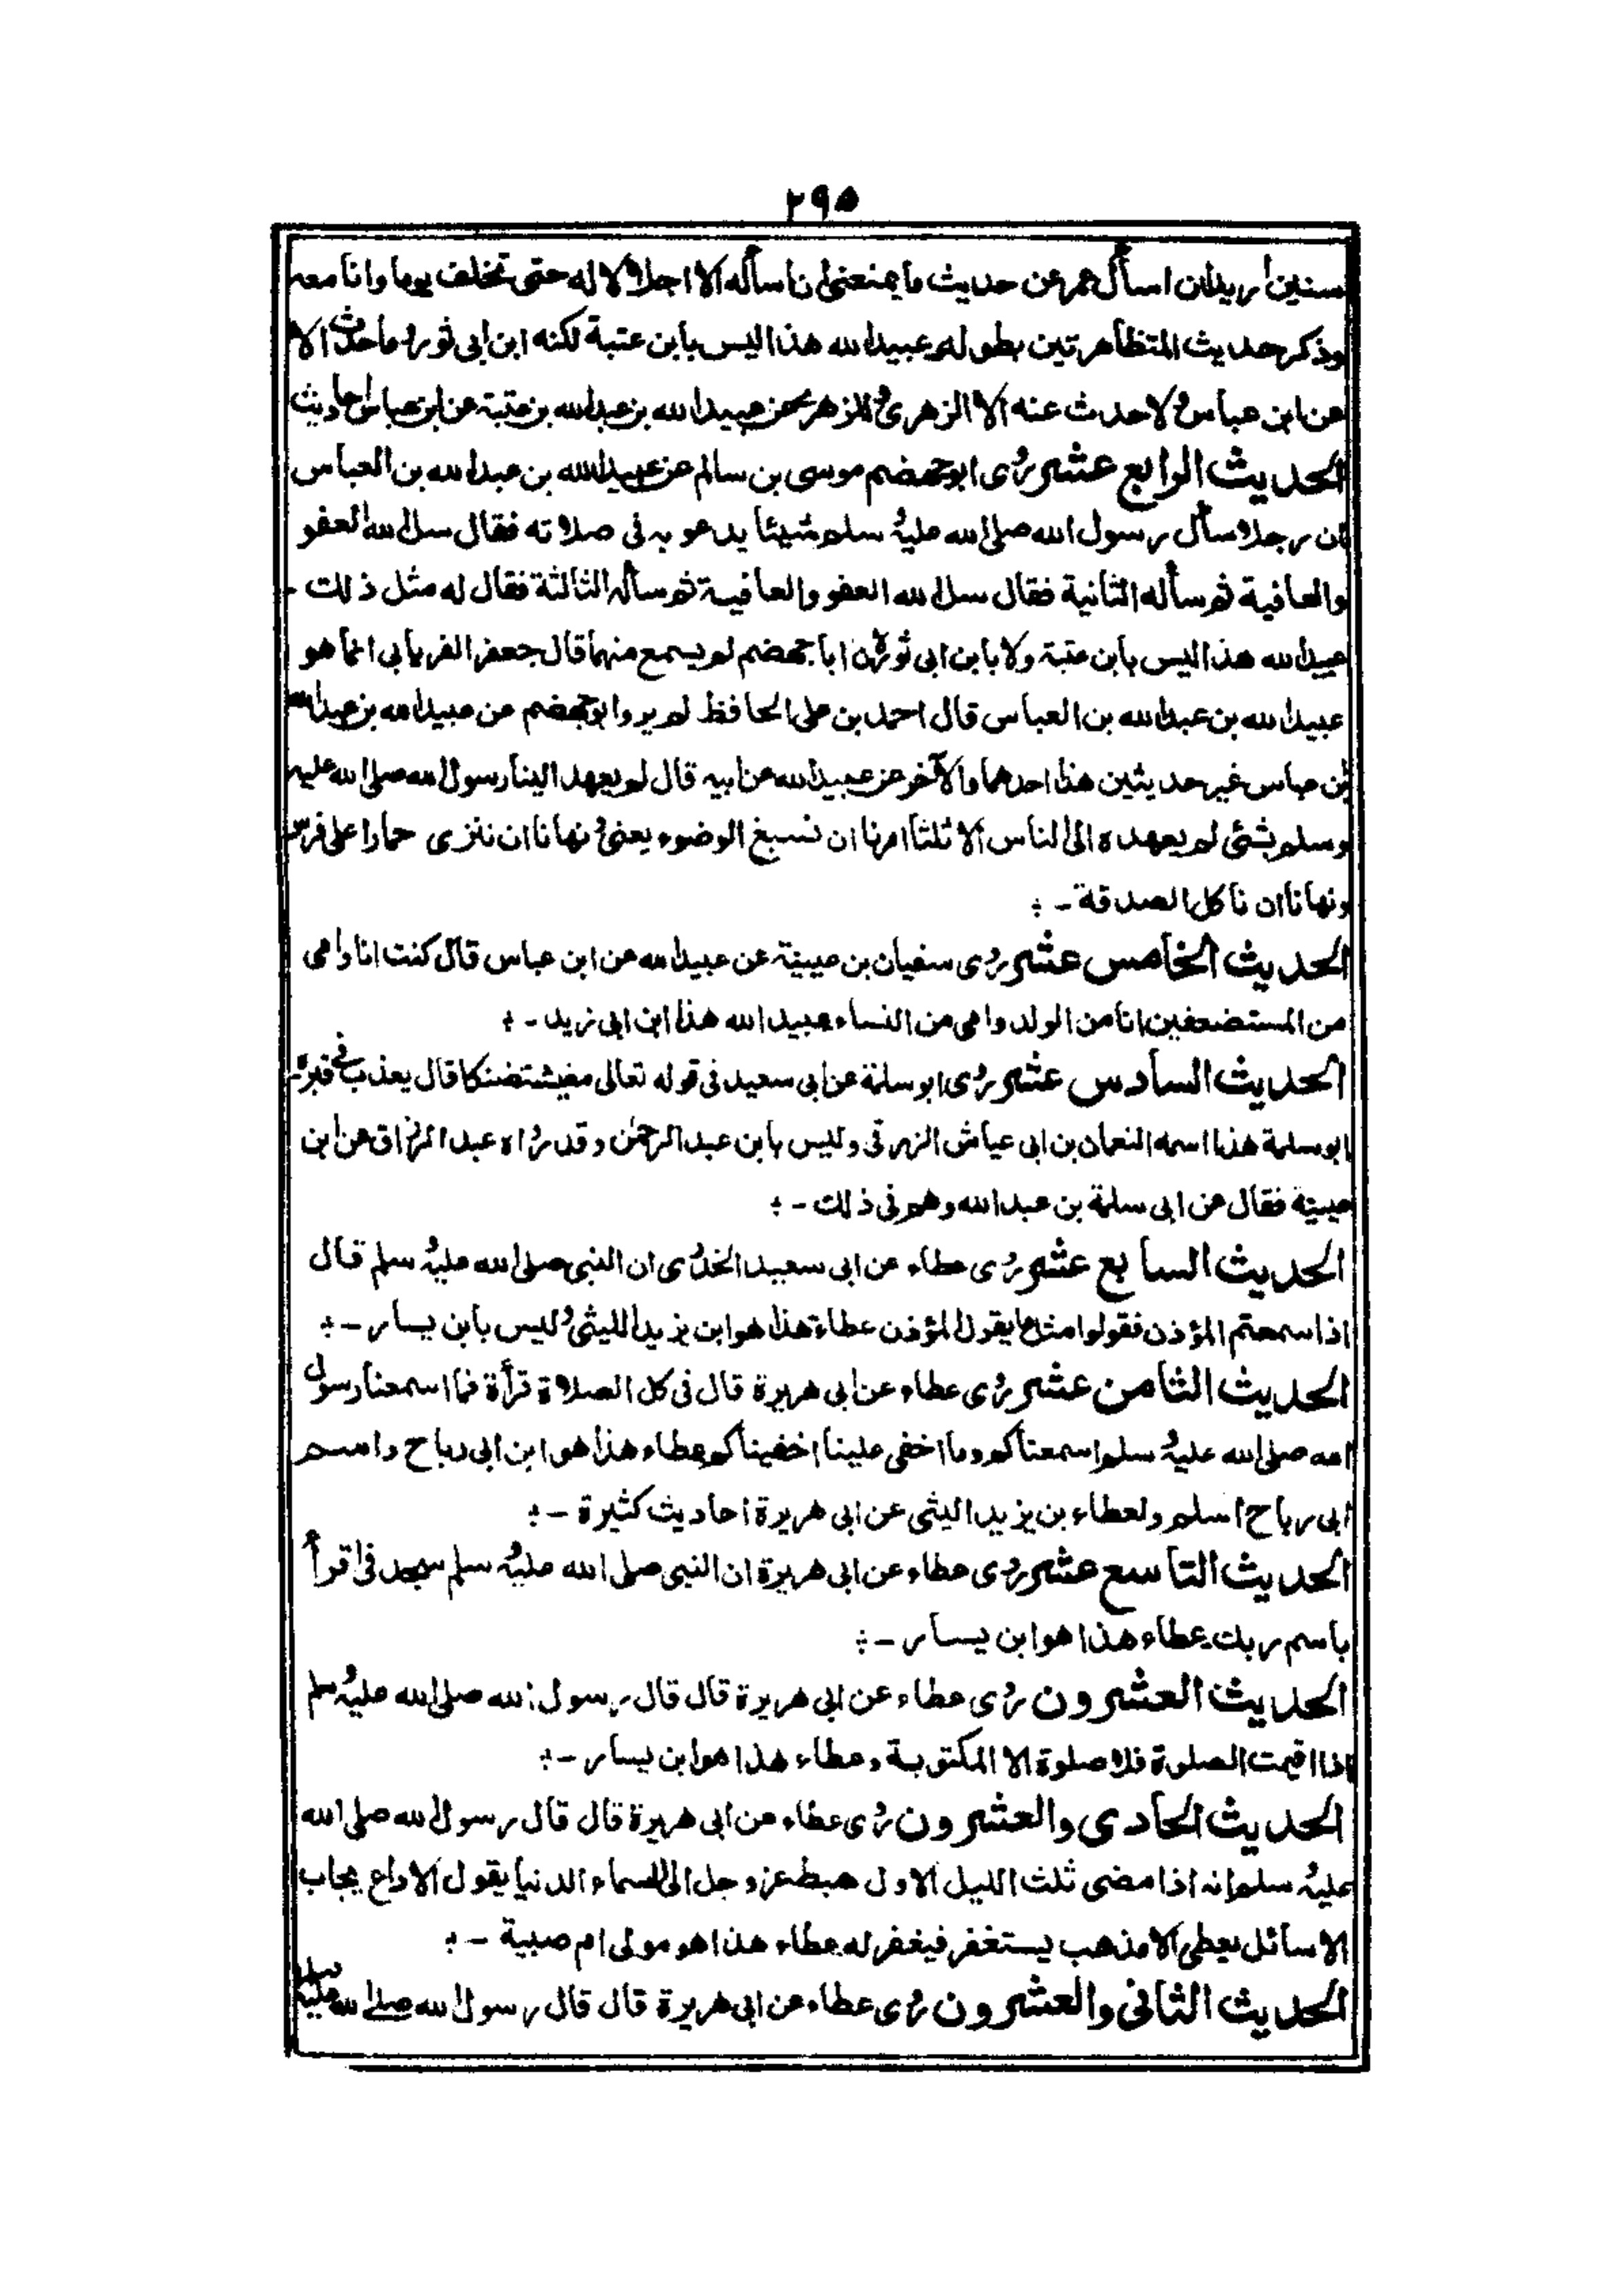 ٢٩٥
سنين أريد ان اسأل عمر عن حديث ما يمنعنى ان اسأله الا اجلالا له حتى تخلف يوما وانا معه
وذكر حديث المتظاهرتين بطوله وعبيد الله هذا ليس بابن عتبة لكنه ابن ابى ثور وما حدث الا
عن ابن عباس ولا حدث عنه الا الزهرى وللزهرى عن عبيد الله بن عبد الله بن عتبة عن ابن عباس احاديث
الحديث الرابع عشر روى ابو جهضم موسى بن سالم عن عبيد الله بن عبد الله بن العباس
ان رجلا سأل رسول الله صلى الله عليه وسلم شيئا يدعو به فى صلاته فقال سل الله العفو
والعافية ثم سأله الثانية فقال سل الله العفو والعافية ثم سأله الثالثة فقال له مثل ذلك -
عبيد الله هذا ليس بابن عتبة ولا بابن ابى ثور لان ابا جهضم لم يسمع منهما قال جعفر الفريابى انما هو
عبيد الله بن عبد الله بن العباس قال احمد بن على الحافظ لم يرو ابو جهضم من عبيد الله بن عبد الله
بن عباس غير حديثين هذا احدهما والآخر عن عبيد الله عن ابيه قال لم يعهد الينا رسول الله صلى الله عليه
وسلم بشئ لم يعهده الى الناس الا ثلثا امرنا ان نسبغ الوضوء يعنى ونهانا ان ننزى حمارا على فرس
ونهانا ان نأكل الصدقة -
الحديث الخامس عشر روى سفيان بن عيينة عن عبيد الله عن ابن عباس قال كنت انا وامى
من المستضعفين انا من الولد وامى من النساء عبيد الله هذا ابن ابى زيد -
الحديث السادس عشر روى ابو سلمة عن ابى سعيد فى قوله تعالى معيشة ضنكا قال يعذب فى قبره -
ابو سلمة هذا اسمه النعمان بن ابى عياش الزرقى وليس بابن عبد الرحمن وقد رواه عبد الرزاق عن ابن
عيينة فقال عن ابى سلمة بن عبد الله وهم فى ذلك -
الحديث السابع عشر روى عطاء عن ابى سعيد الخدرى ان النبى صلى الله عليه وسلم قال
اذا سمعتم المؤذن فقولوا مثل ما يقول المؤذن عطاء هذا هو ابن يزيد الليثى وليس بابن يسار -
الحديث الثامن عشر روى عطاء عن ابى هريرة قال فى كل الصلاة قرأة فما اسمعنا رسول
الله صلى الله عليه وسلم اسمعناكم وما اخفى علينا اخفيناكم عطاء هذا هو ابن ابى رباح واسم
ابى رباح اسلم ولعطاء بن يزيد الليثى عن ابى هريرة احاديث كثيرة -
الحديث التاسع عشر روى عطاء عن ابى هريرة ان النبى صلى الله عليه وسلم سجد فى اقرأ
باسم ربك عطاء هذا هو ابن يسار -
الحديث العشرون روى عطاء عن ابى هريرة قال قال رسول الله صلى الله عليه وسلم
اذا اقيمت الصلوة فلا صلوة الا المكتوبة وعطاء هذا هو ابن يسار -
الحديث الحادى والعشرون روى عطاء عن ابى هريرة قال قال رسول الله صلى الله
عليه وسلم انه اذا مضى ثلث الليل الاول هبط عز وجل الى السماء الدنيا يقول الا داع يجاب
الا سائل يعطى الا مذهب يستغفر فيغفر له عطاء هذا هو مولى ام صبية -
الحديث الثانى والعشرون روى عطاء عن ابى هريرة قال قال رسول الله صلى الله عليه وسلم